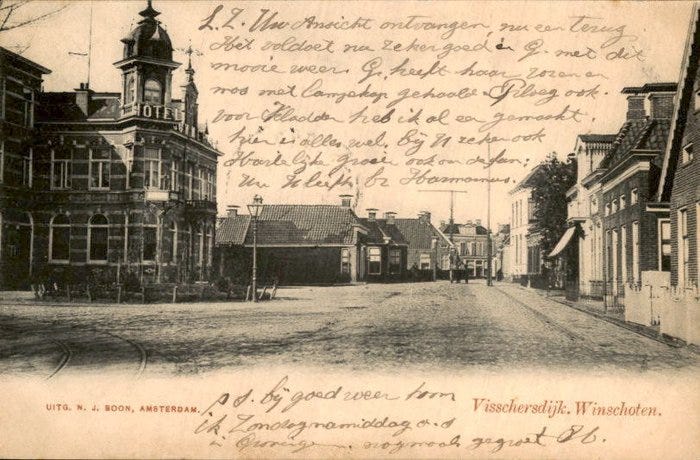 L. Z. Uw Ansicht ontvangen, nu een terug
Het voldoet nu zeker goed G. met dit
mooie weer. G. heeft haar rozen en
mos met lampekap gehaald. ook.
voor Klaadder heb ik al een gemaakt.
hier is alles wel. bij U zeker ook
Hartelijke groet ook
Uw
HOTEL
UITG. N. J. BOON, AMSTERDAM.
Visschersdijk. Winschoten.
p s. bij goed weer kom
ik Zondagnamiddag a.s
in Groningen. nogmaals gegroet